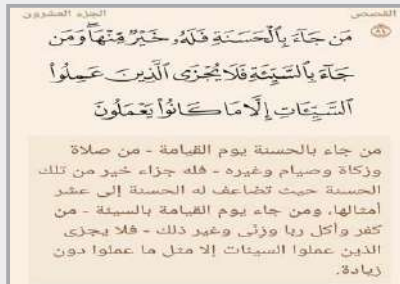 القصص الجزء العشرون
مَن جَآءَ بِٱلْحَسَنَةِ فَلَهُۥ خَيْرٌ مِّنْهَا ۖ وَمَن
جَآءَ بِٱلسَّيِّئَةِ فَلَا يُجْزَى ٱلَّذِينَ عَمِلُوا۟
ٱلسَّيِّـَٔاتِ إِلَّا مَا كَانُوا۟ يَعْمَلُونَ
من جاء بالحسنة يوم القيامة - من صلاة
وزكاة وصيام وغيره - فله جزاء خير من تلك
الحسنة حيث تضاعف له الحسنة إلى عشر
أمثالها، ومن جاء يوم القيامة بالسيئة - من
كفر وأكل ربا وزنًى وغير ذلك - فلا يجزى
الذين عملوا السيئات إلا مثل ما عملوا دون
زيادة.